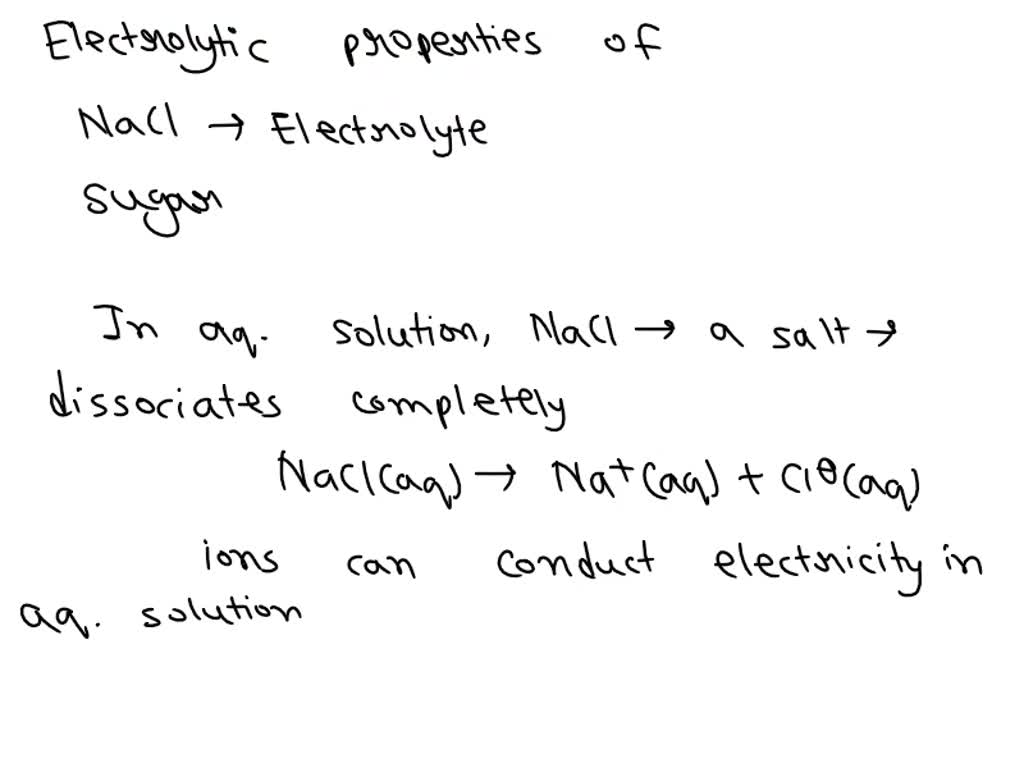 Electrolytic properties of
NaCl → Electrolyte
Sugar
In aq. solution, NaCl → a salt →
dissociates completely
NaCl(aq) → Na⁺(aq) + Cl⊖(aq)
ions can conduct electricity in
aq. solution